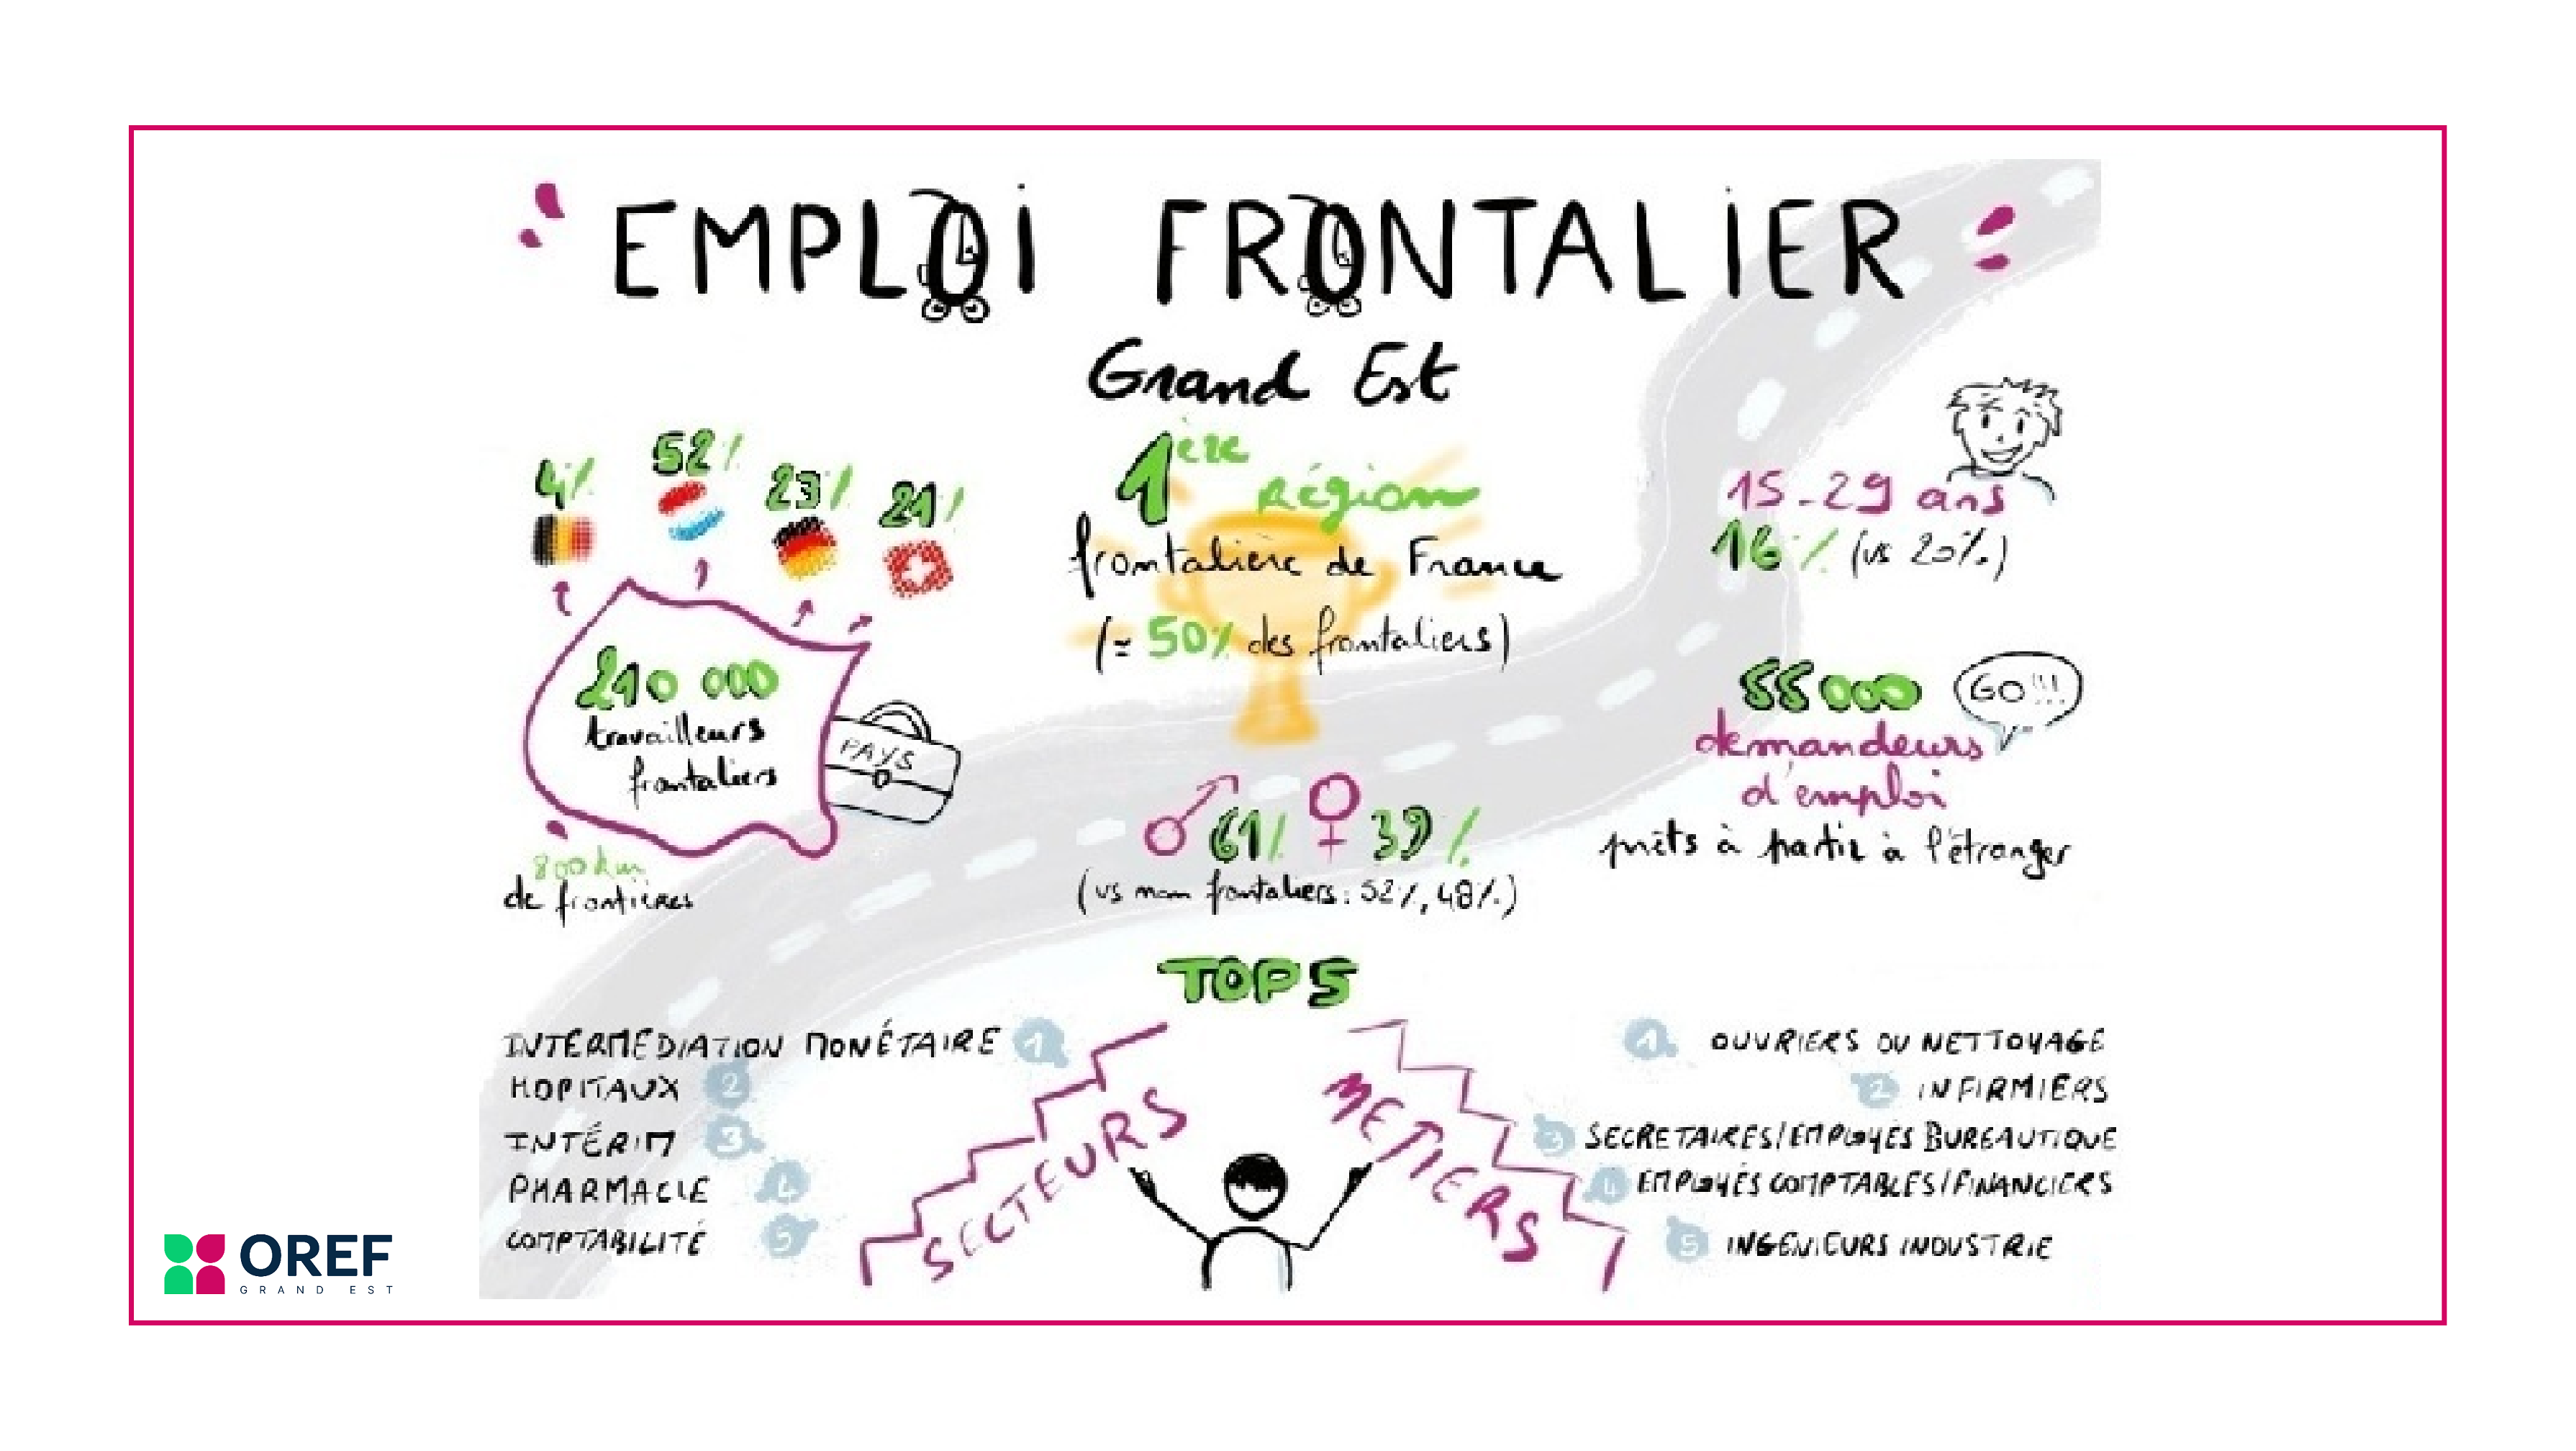 EMPLOI FRONTALIER
Grand Est
4% 52% 23% 21%
210 000
travailleurs
frontaliers
PAYS
800 km
de frontières
1ère région
frontalière de France
(= 50% des frontaliers)
♂ 61% ♀ 39%
(vs non frontaliers : 52%, 48%)
15-29 ans
16% (vs 20%)
55 000
GO!!!
demandeurs
d'emploi
prêts à partir à l'étranger
TOP 5
SECTEURS
INTERMEDIATION MONÉTAIRE 1
HOPITAUX 2
INTÉRIM 3
PHARMACIE 4
COMPTABILITÉ 5
METIERS
1 OUVRIERS DU NETTOYAGE
2 INFIRMIERS
3 SECRETAIRES/EMPLOYÉS BUREAUTIQUE
4 EMPLOYÉS COMPTABLES/FINANCIERS
5 INGENIEURS INDUSTRIE
OREF
GRAND EST